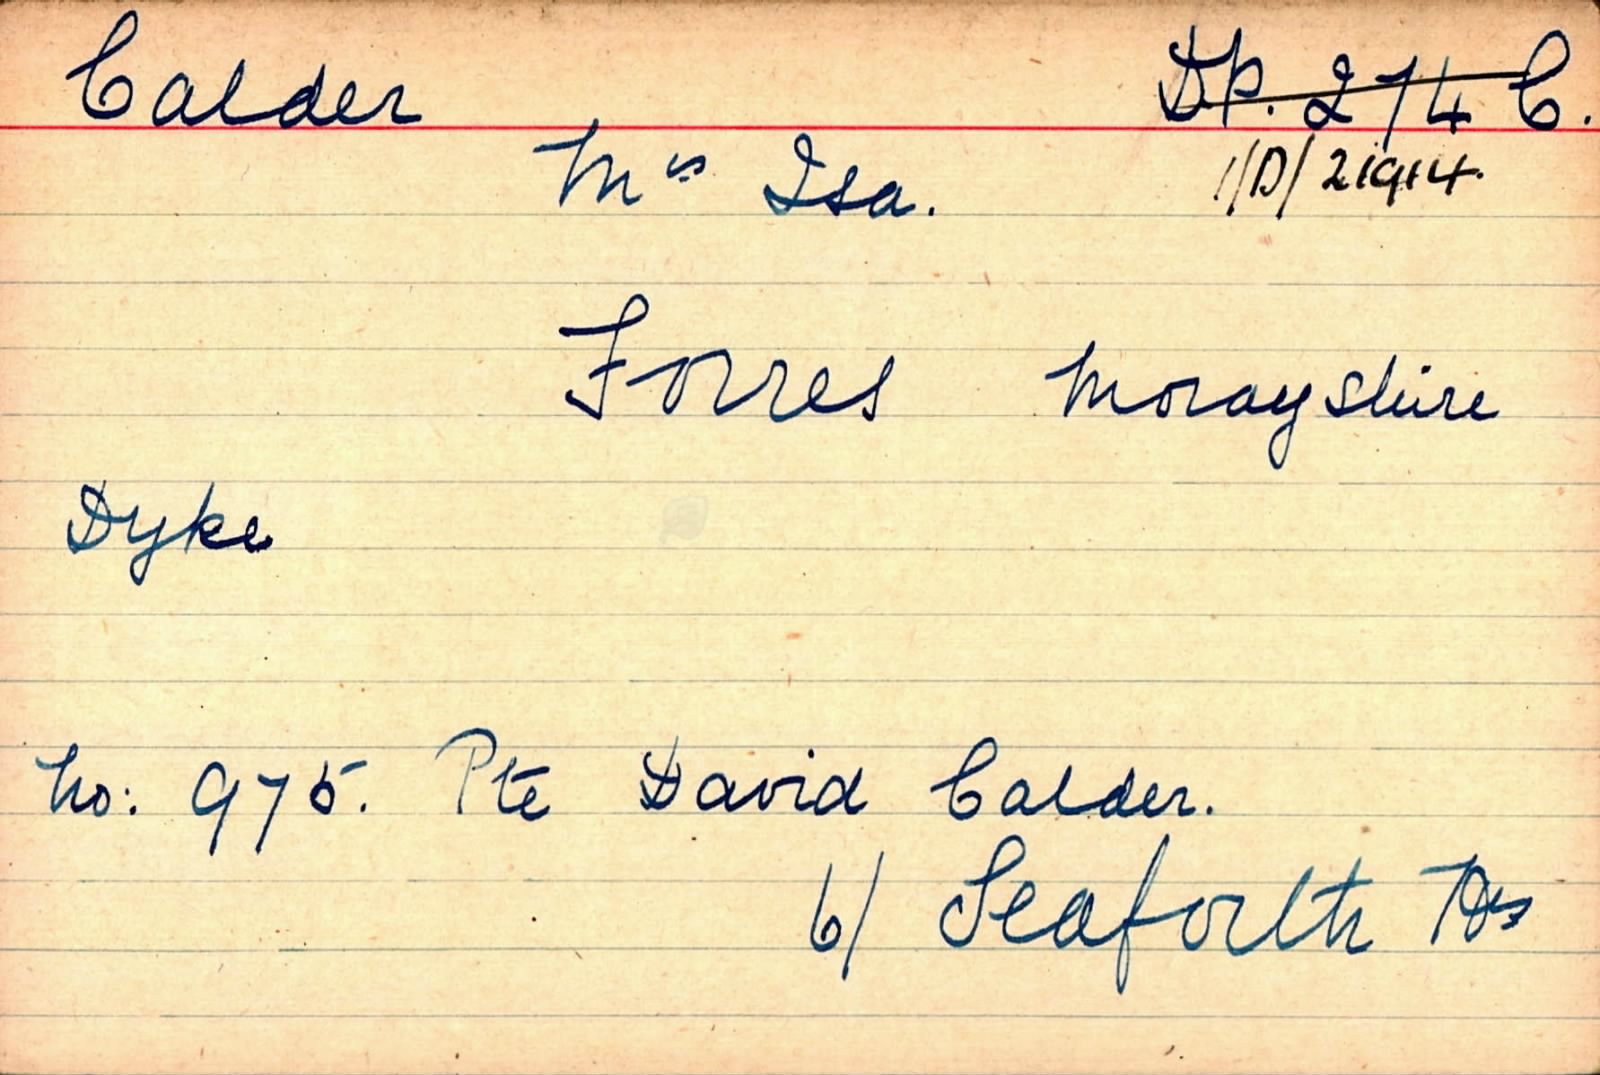 Calder D.P. 274 C.
Mrs Isa. 1/D/21914.
Forres Morayshire
Dyke
No: 975. Pte David Calder.
6/ Seaforth Hrs